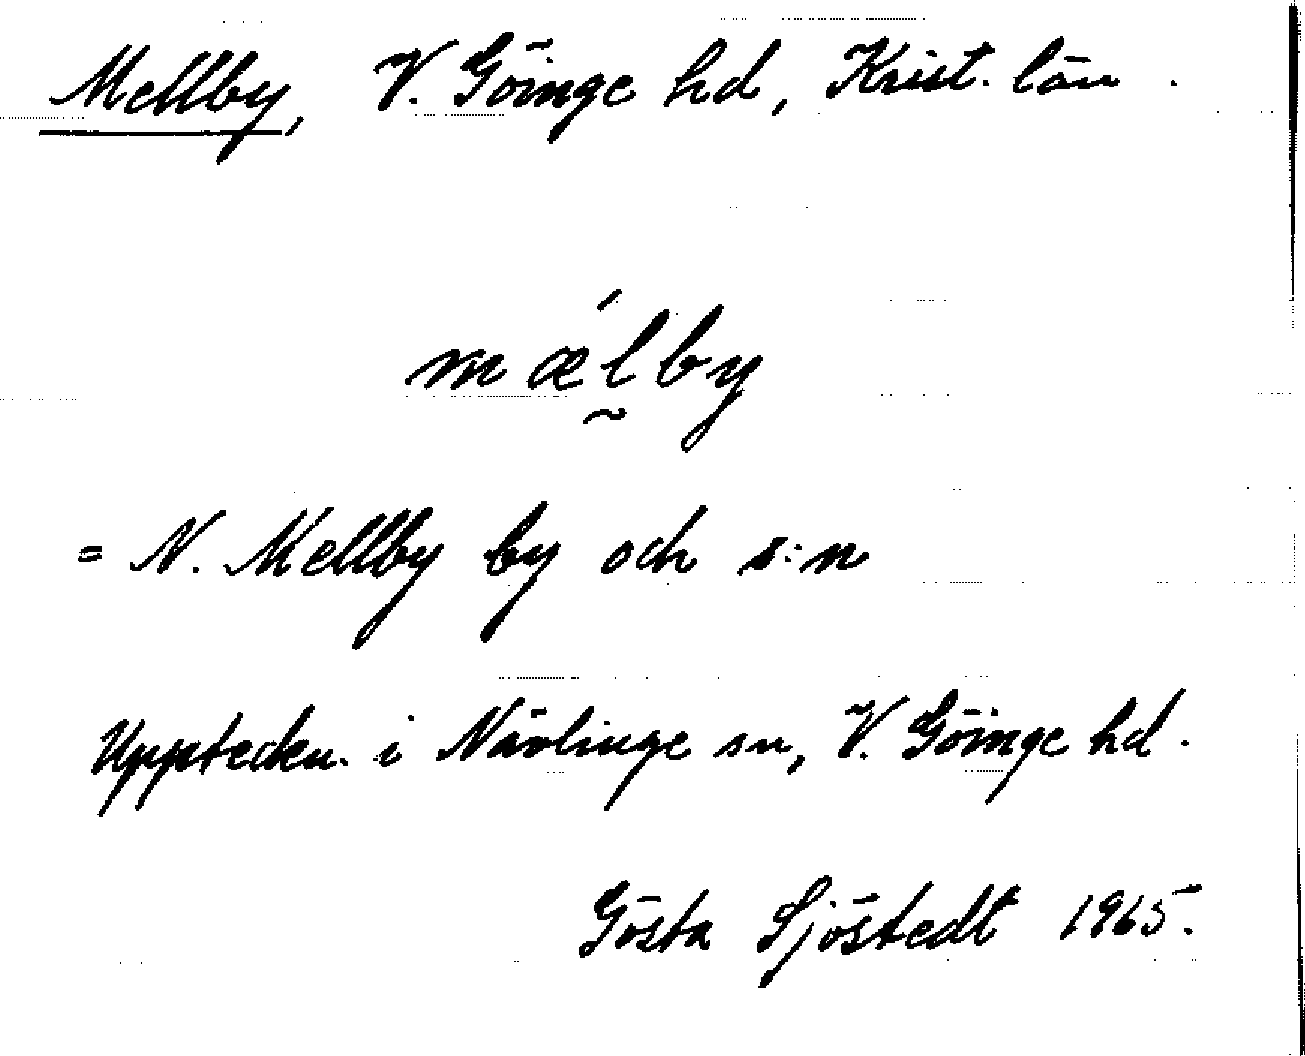 Mellby, V. Göinge hd, Krist. län.
mǽl̰by
= N. Mellby by och s:n
Uppteckn. i Nävlinge sn, V. Göinge hd.
Gösta Sjöstedt 1965.